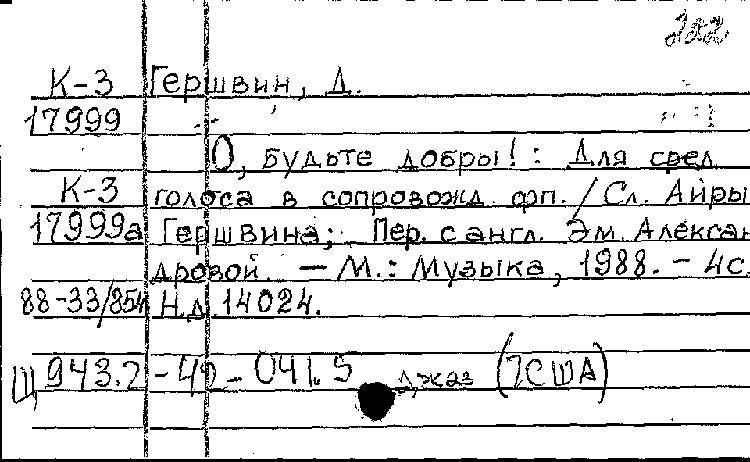 222
К-3 Гершвин, Д.
17999
О, будьте добры! : Для сред.
К-3 голоса в сопровожд. фп. / Сл. Айры
17999а Гершвина; Пер. с англ. Эм. Алексан-
дровой. — М. : Музыка, 1988. — 4с.
88-33/854 Н.д. 14024.
Щ 943.2 - 42 - 041.5 джаз (7США)